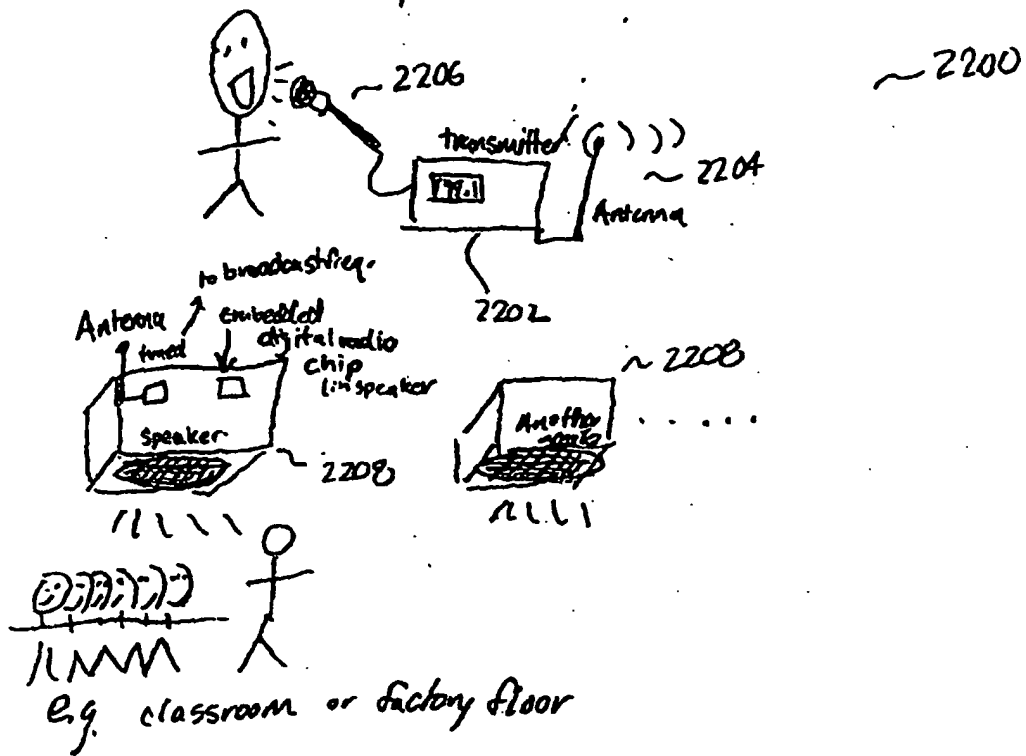 2206
2200
transmitter
99.1
2204
Antenna
2202
to broadcast freq.
Antenna
tuned
embedded
digital radio
chip
(in speaker
2208
speaker
2208
Another
e.g. classroom or factory floor